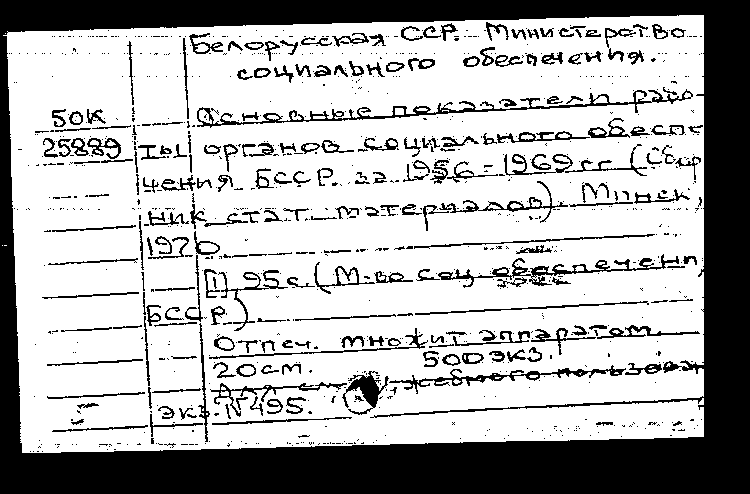 Белорусская ССР. Министерство
социального обеспечения.
50К Основные показатели рабо-
25889 ты органов социального обеспе
чения БССР. за 1956-1969 гг (Сбор
ник стат. материалов). Минск,
1970.
[1], 95 с. (М-во соц. обеспечени,
БССР).
Отпеч. множит аппаратом.
20см. 500 экз.
Для служебного пользован
экз. N 495.